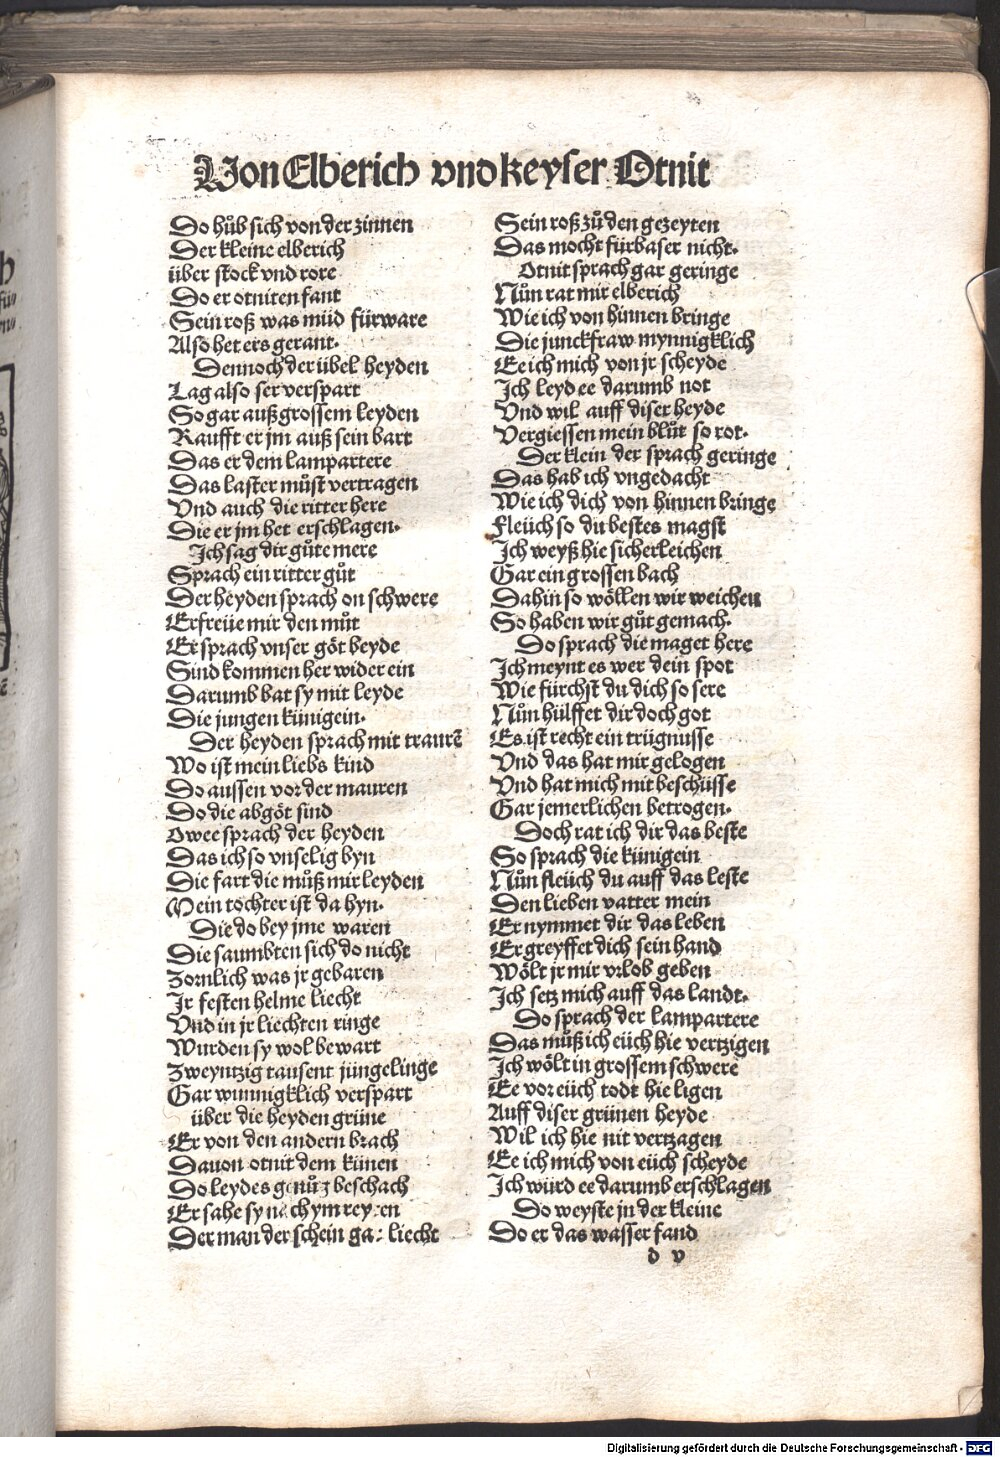 Von Elberich vnd keyser Otnit
Do hůb sich von der zinnen
Der kleine elberich
über stock vnd rore
Do er otniten fant
Sein roß was müd fürware
Also het ers gerant.
Dennoch der übel heyden
Lag also ser verspart
So gar auß grossem leyden
Raufft er jm auß sein bart
Das er dem lampartere
Das laster můst vertragen
Vnd auch die ritter here
Die er jm het erschlagen.
Ich sag dir gůte mere
Sprach ein ritter gůt
Der heyden sprach on schwere
Erfreüe mir den můt
Er sprach vnser göt beyde
Sind kommen her wider ein
Darumb bat sy mit leyde
Die jungen künigein.
Der heyden sprach mit traurē
Wo ist mein liebs kind
Do aussen vor der mauren
Do die abgöt sind
Owee sprach der heyden
Das ich so vnselig byn
Die fart die můß mir leyden
Mein tochter ist da hyn.
Die do bey jme waren
Die saumbten sich do nicht
Zornlich was jr gebaren
Jr festen helme liecht
Vnd in jr liechten ringe
Wurden sy wol bewart
Zweyntzig tausent jüngelinge
Gar wunnigklich verspart
über die heyden grüne
Er von den andern brach
Dauon otnit dem künen
Do leydes genůg beschach
Er sahe sy nach ym reyten
Der man der schein gar liecht
Sein roß zů den gezeyten
Das mocht fürbaser nicht.
Otnit sprach gar geringe
Nůn rat mir elberich
Wie ich von hinnen bringe
Die junckfraw mynnigklich
Ee ich mich von jr scheyde
Ich leyd ee darumb not
Vnd wil auff diser heyde
Vergiessen mein blůt so rot.
Der klein der sprach geringe
Das hab ich vngedacht
Wie ich dich von hinnen bringe
Fleüch so du bestes magst
Ich weyß hie sicherleichen
Gar ein grossen bach
Dahin so wöllen wir weichen
So haben wir gůt gemach.
Do sprach die maget here
Ich meynt es wer dein spot
Wie fürchst du dich so sere
Nůn hülffet dir doch got
Es ist recht ein trügnusse
Vnd das hat mir gelogen
Vnd hat mich mit beschüsse
Gar jemerlichen betrogen.
Doch rat ich dir das beste
So sprach die künigein
Nůn fleüch du auff das leste
Den lieben vatter mein
Er nymmet dir das leben
Ergreyffet dich sein hand
Wölt jr mir vrlob geben
Ich setz mich auff das landt.
So sprach der lampartere
Das můß ich eüch hie vertzigen
Ich wölt in grossem schwere
Ee vor eüch todt hie ligen
Auff diser grünen heyde
Wil ich hie nit vertzagen
Ee ich mich von eüch scheyde
Ich würd ee darumb erschlagen
Do weyste jn der kleine
Do er das wasser fand
d v
Digitalisierung gefördert durch die Deutsche Forschungsgemeinschaft - DFG